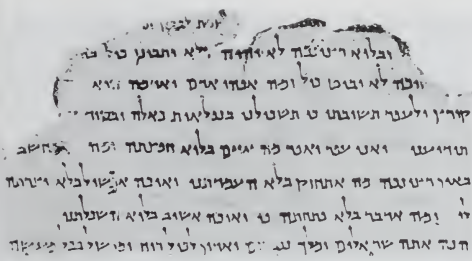 ובלוא רצונכה לא יהיה ולא יתבונן כול
לא יביט כול ומה אפהו אדם ואדמה הוא
קורץ ולעפר תשובתו כי תשכילנו בנפלאות כאלה ובסוד
תודיענו ואני עפר ואפר מה אזום בלוא חפצתה ומה אתחשב
באין רצונכה מה אתחזק בלא העמדתני ואיכה בלא יצרתה
לי ומה אדבר בלא פתחתה פי ואיכה אשיב בלוא השכלתני
הנה אתה שר אלים ומלך נכבדים ואדון לכול רוח ומושל בכל מעשה